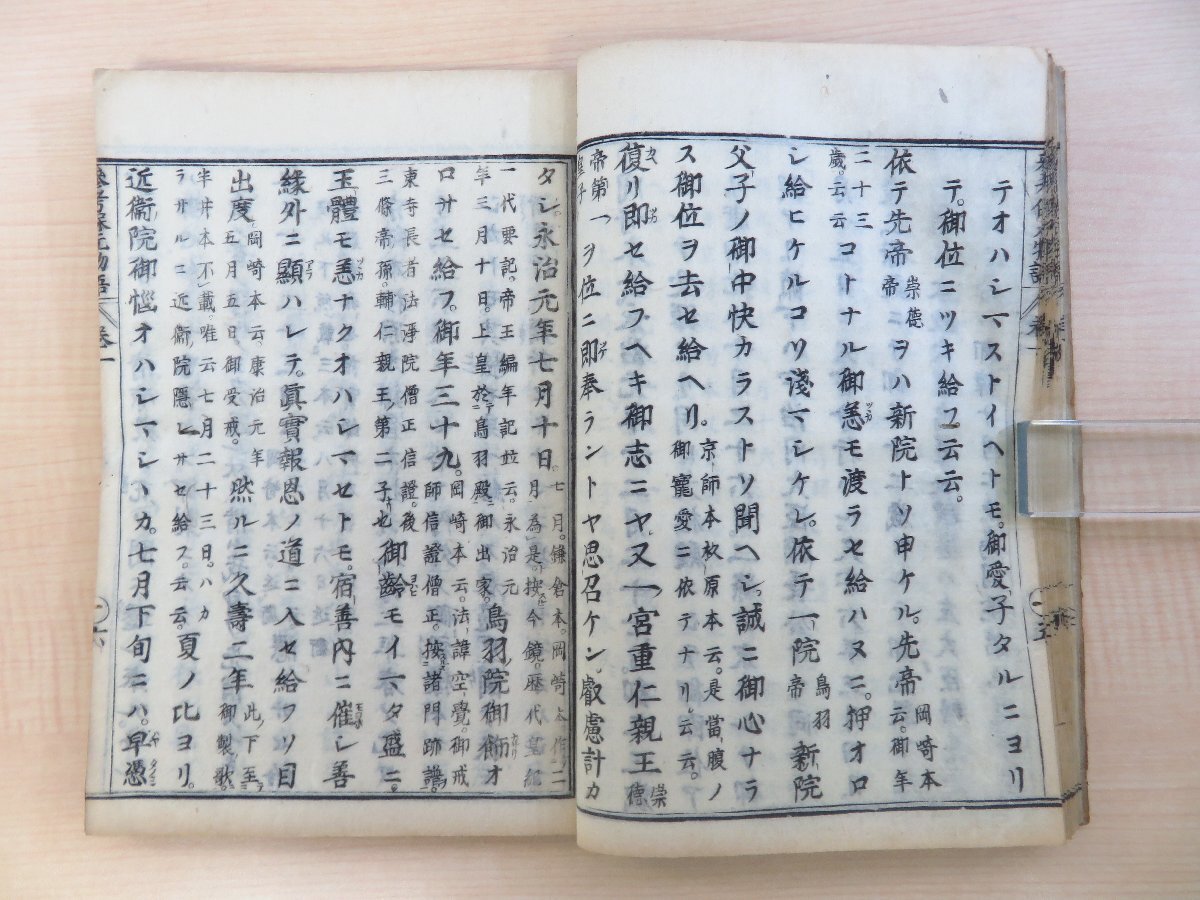 テオハシマストイヘトモ。御愛子タルニヨリ
テ。御位ニツキ給フ云云。
依テ先帝崇德帝ヲハ新院トソ申ケル。先帝岡崎本云。御年
二十三歲。云云コトナル御恙モ渡ラセ給ハヌニ。押オロ
シ給ヒケルコソ淺マシケレ。依テ一院鳥羽帝新院
父子ノ御中快カラストソ聞ヘシ。誠ニ御心ナラ
ス御位ヲ去セ給ヘリ。京師本杉原本云。是當腹ノ御寵愛ニ依テナリ云云。
復リ即セ給フヘキ御志ニヤ。又一宮重仁親王崇德
帝第一皇子ヲ位ニ即奉ラントヤ思召ケン。叡慮計カ
タシ。永治元年七月十日。七月。鎌倉本。岡崎本作二月爲是。按今鏡。歷代皇紀
一代要記。帝王編年記竝云。永治元年三月十日。上皇於鳥羽殿御出家。鳥羽院御飾オ
ロサセ給フ。御年三十九。岡崎本云。法諱空覺。御戒師信證僧正。按諸門跡譜。
東寺長者法淨院僧正信證。後三條帝孫。輔仁親王第二子也御齡モイマタ盛ニ。
玉體モ恙ナクオハシマセトモ。宿善內ニ催シ善
緣外ニ顯ハレテ。眞實報恩ノ道ニ入セ給フソ目
出度。岡崎本云。康治元年五月五日御受戒。然ルニ久壽二年此下至御製歌。
半井本不載。唯云七月二十三日。ハカラサルニ近衞院隱レサセ給フ。云云。夏ノ比ヨリ。
近衞院御惱オハシマシシカ。七月下旬ニハ。早憑
參考保元物語 卷一